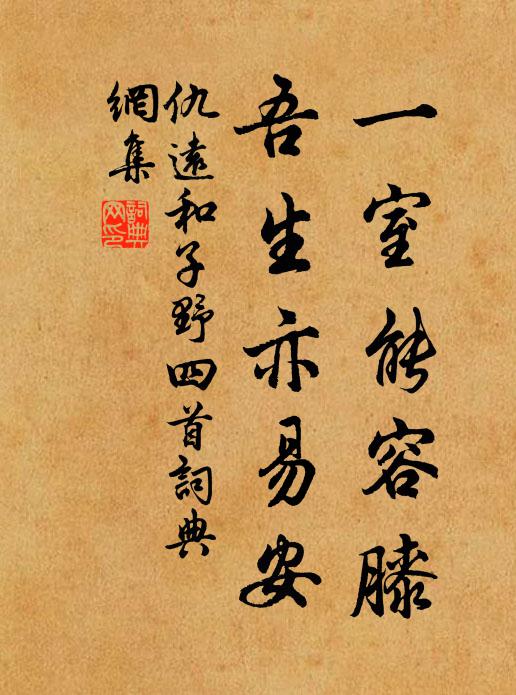 一室能容膝
吾生亦易安
仇遠和子野四首詞典
網集
詞典網印